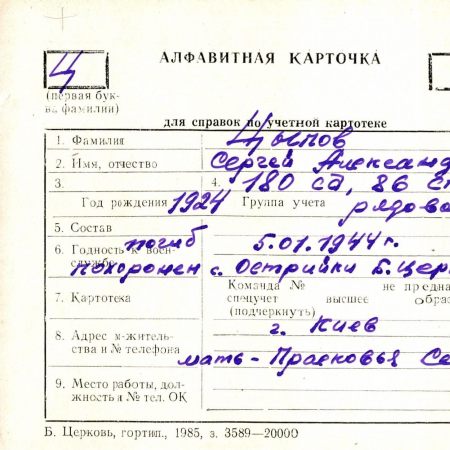 АЛФАВИТНАЯ КАРТОЧКА
Ц
(первая бук-
ва фамилии)
для справок по учетной картотеке
1. Фамилия Цыпов
2. Имя, отчество Сергей Александ
3. 4. 180 сд, 86 с
Год рождения 1924 Группа учета рядово
5. Состав
6. Годность к воен-
службе погиб 5.01.1944 г.
похоронен с. Острийки Б.Цер
Команда № не предна
7. Картотека спецучет высшее обра
(подчеркнуть)
8. Адрес м-жительства г. Киев
ства и № телефона
мать - Прасковья Се
9. Место работы, дол-
жность и № тел. ОК
Б. Церковь, гортип., 1985, з. 3589—20000